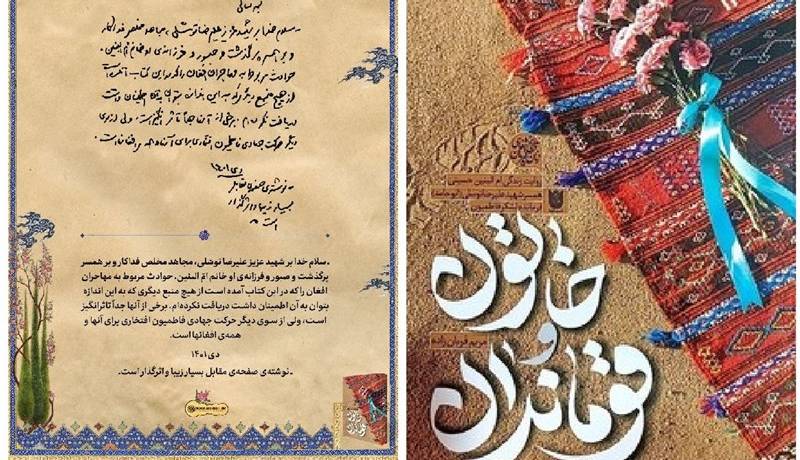 بسمه تعالی
سلام خدا بر شهید عزیز علیرضا توسلی، مجاهد مخلص فداکار
و بر همسر پرگذشت و صبور و فرزانه‌ی او خانم ام البنین.
حوادث مربوط به مهاجران افغان را که در این کتاب آمده است
از هیچ منبع دیگری که به این اندازه بتوان به آن اطمینان داشت
دریافت نکرده‌ام. برخی از آنها جداً تأثر انگیز است، ولی از سوی
دیگر حرکت جهادی فاطمیون افتخاری برای آنها و همه‌ی افغانها است.
دی ۱۴۰۱
- نوشته‌ی صفحه‌ی مقابل
بسیار زیبا و اثرگذار
است
.سلام خدا بر شهید عزیز علیرضا توشلی، مجاهد مخلص فداکار و بر همسر
پرگذشت و صبور و فرزانه‌ی او خانم امّ البنین. حوادث مربوط به مهاجران
افغان را که در این کتاب آمده است از هیچ منبع دیگری که به این اندازه
بتوان به آن اطمینان داشت دریافت نکرده ام. برخی از آنها جداً تأثرانگیز
است، ولی از سوی دیگر حرکت جهادی فاطمیون افتخاری برای آنها و
همه‌ی افغانها است.
دی ۱۴۰۱
. نوشته‌ی صفحه‌ی مقابل بسیار زیبا و اثرگذار است.
خاتون
و
قوماندان
مریم قربان زاده